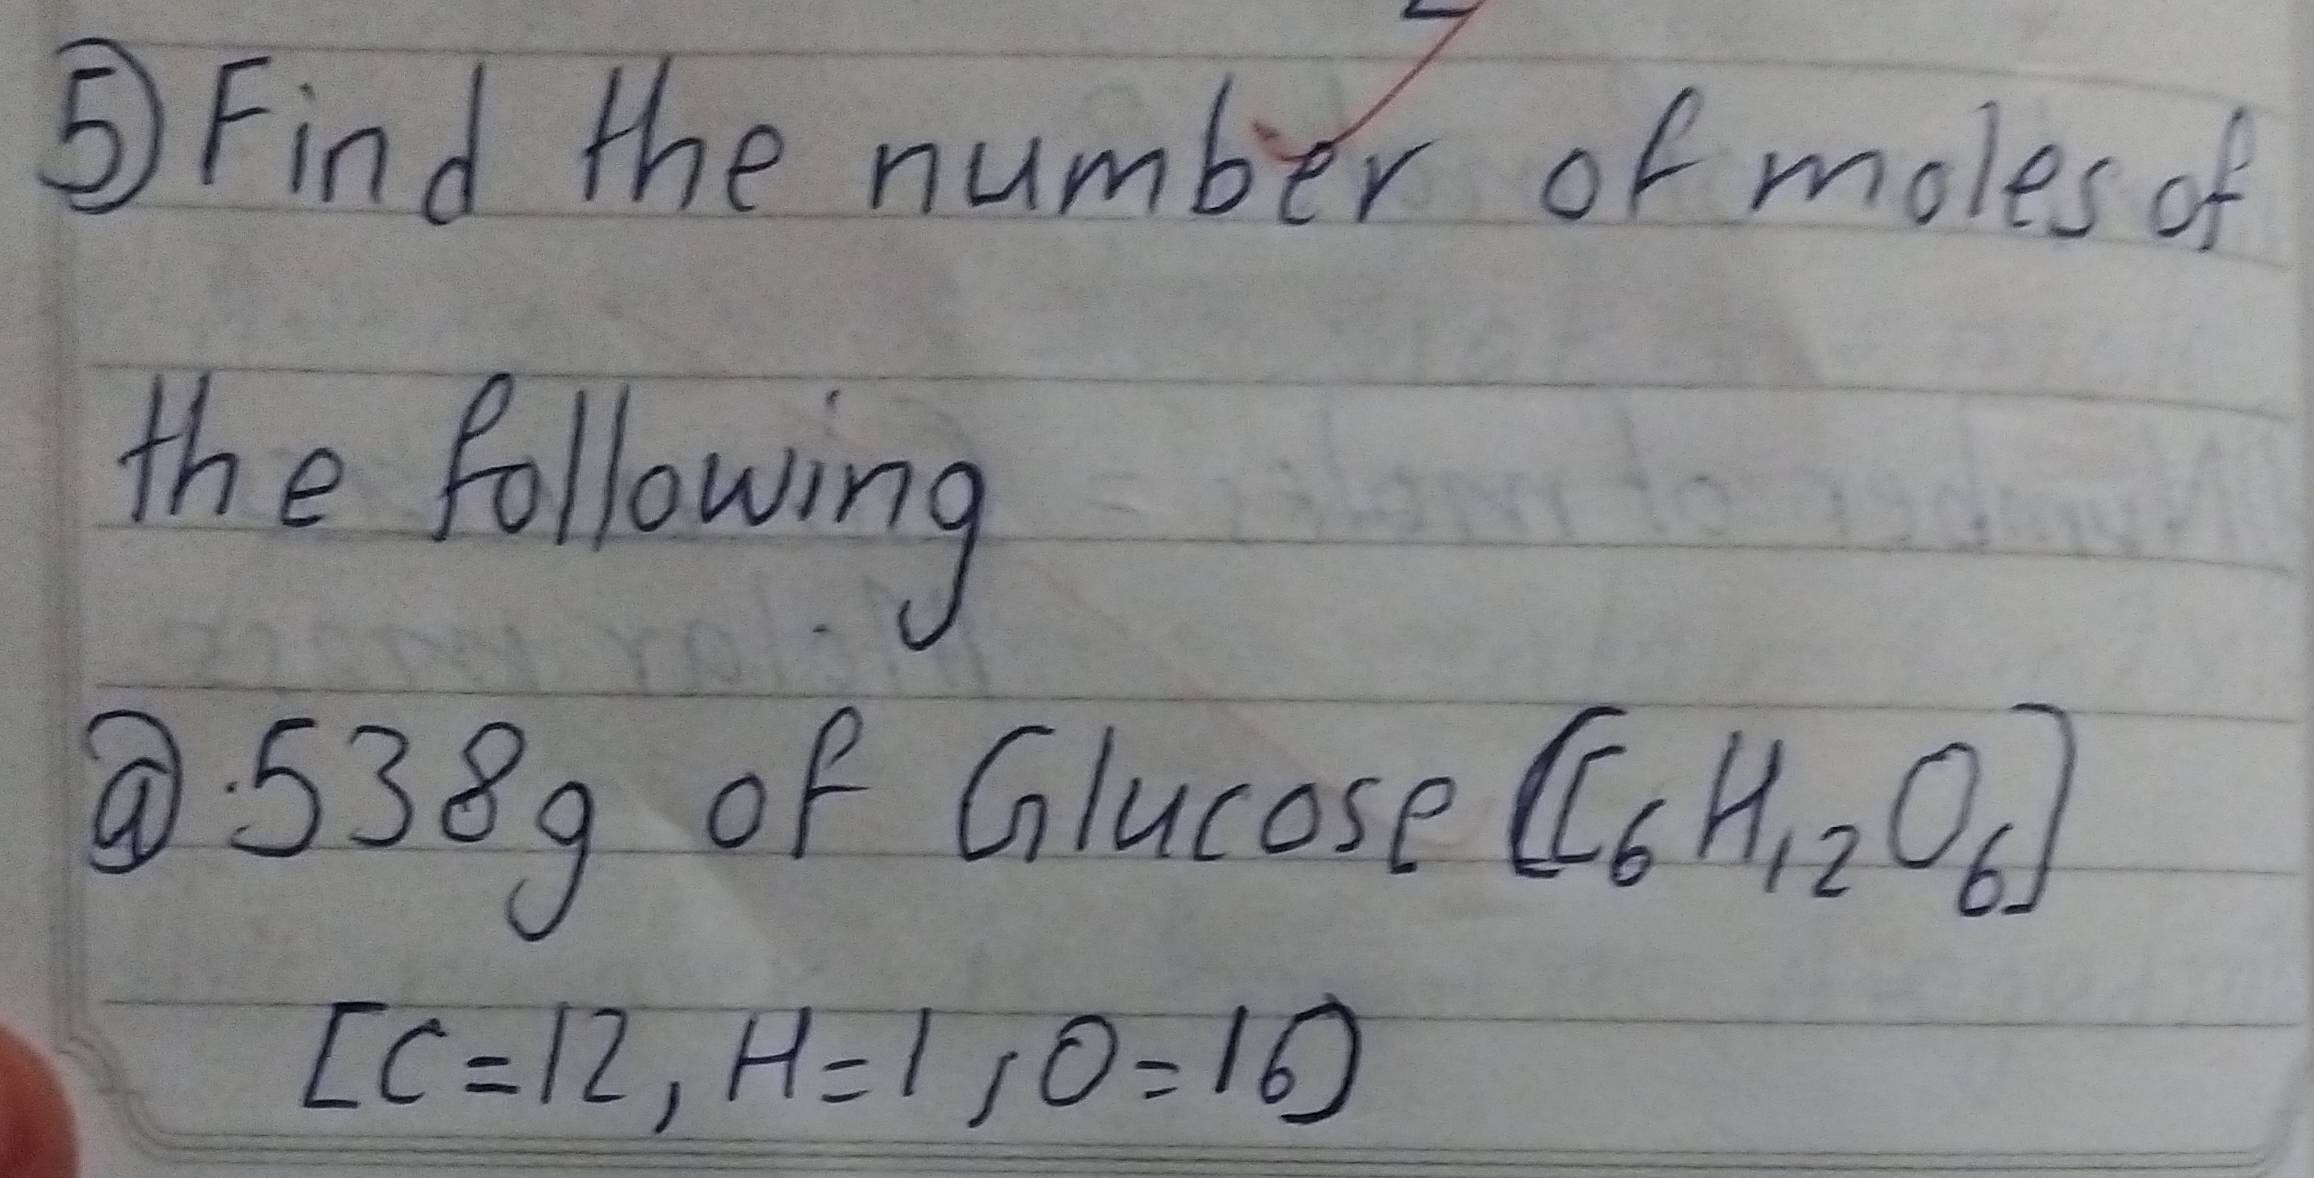 ⑤ Find the number of moles of
the following
ⓐ.538g of Glucose [C₆H₁₂O₆]
[C=12, H=1, O=16]